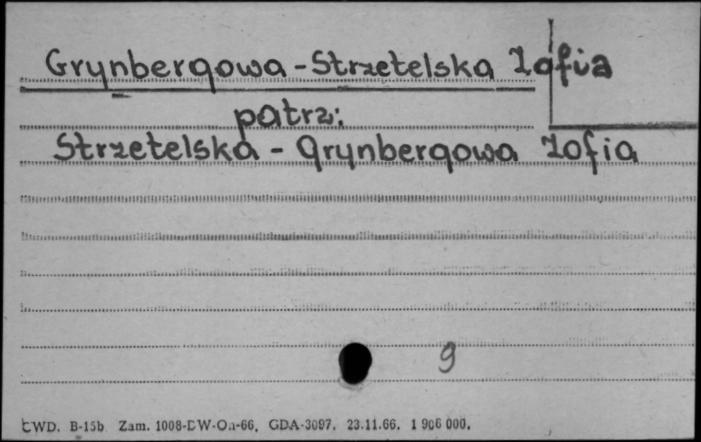 Grynbergowa - Strzetelska Zofia
patrz:
Strzetelska - Grynbergowa Zofia
9
CWD. B-15b Zam. 1008-DW-On-66. GDA-3097. 23.11.66. 1 906 000.